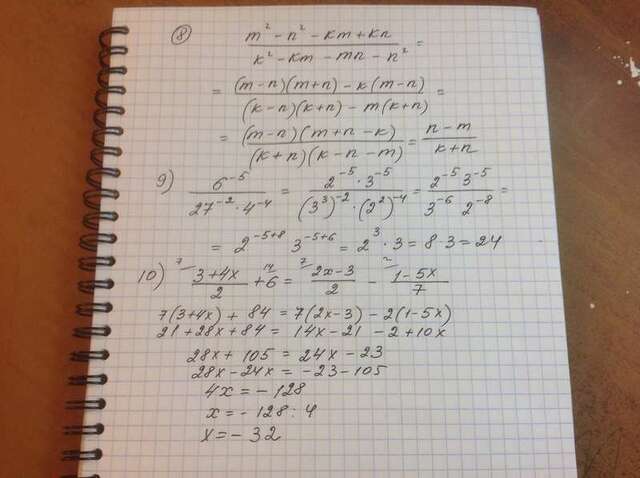 8 (m² - n² - km + kn)/(k² - km - mn - n²) =
= ((m-n)(m+n) - k(m-n))/((k-n)(k+n) - m(k+n)) =
= ((m-n)(m+n-k))/((k+n)(k-n-m)) = (n-m)/(k+n)
9) 6⁻⁵/(27⁻²·4⁻⁴) = (2⁻⁵·3⁻⁵)/((3³)⁻²·(2²)⁻⁴) = (2⁻⁵ 3⁻⁵)/(3⁻⁶ 2⁻⁸) =
= 2⁻⁵⁺⁸ 3⁻⁵⁺⁶ = 2³·3 = 8·3 = 24
10) ⁷⁄(3+4x)/2 + ¹⁴⁄6 = ⁷⁄(2x-3)/2 - ²⁄(1-5x)/7
7(3+4x) + 84 = 7(2x-3) - 2(1-5x)
21+28x+84 = 14x-21-2+10x
28x + 105 = 24x - 23
28x - 24x = -23-105
4x = -128
x = -128:4
x = -32